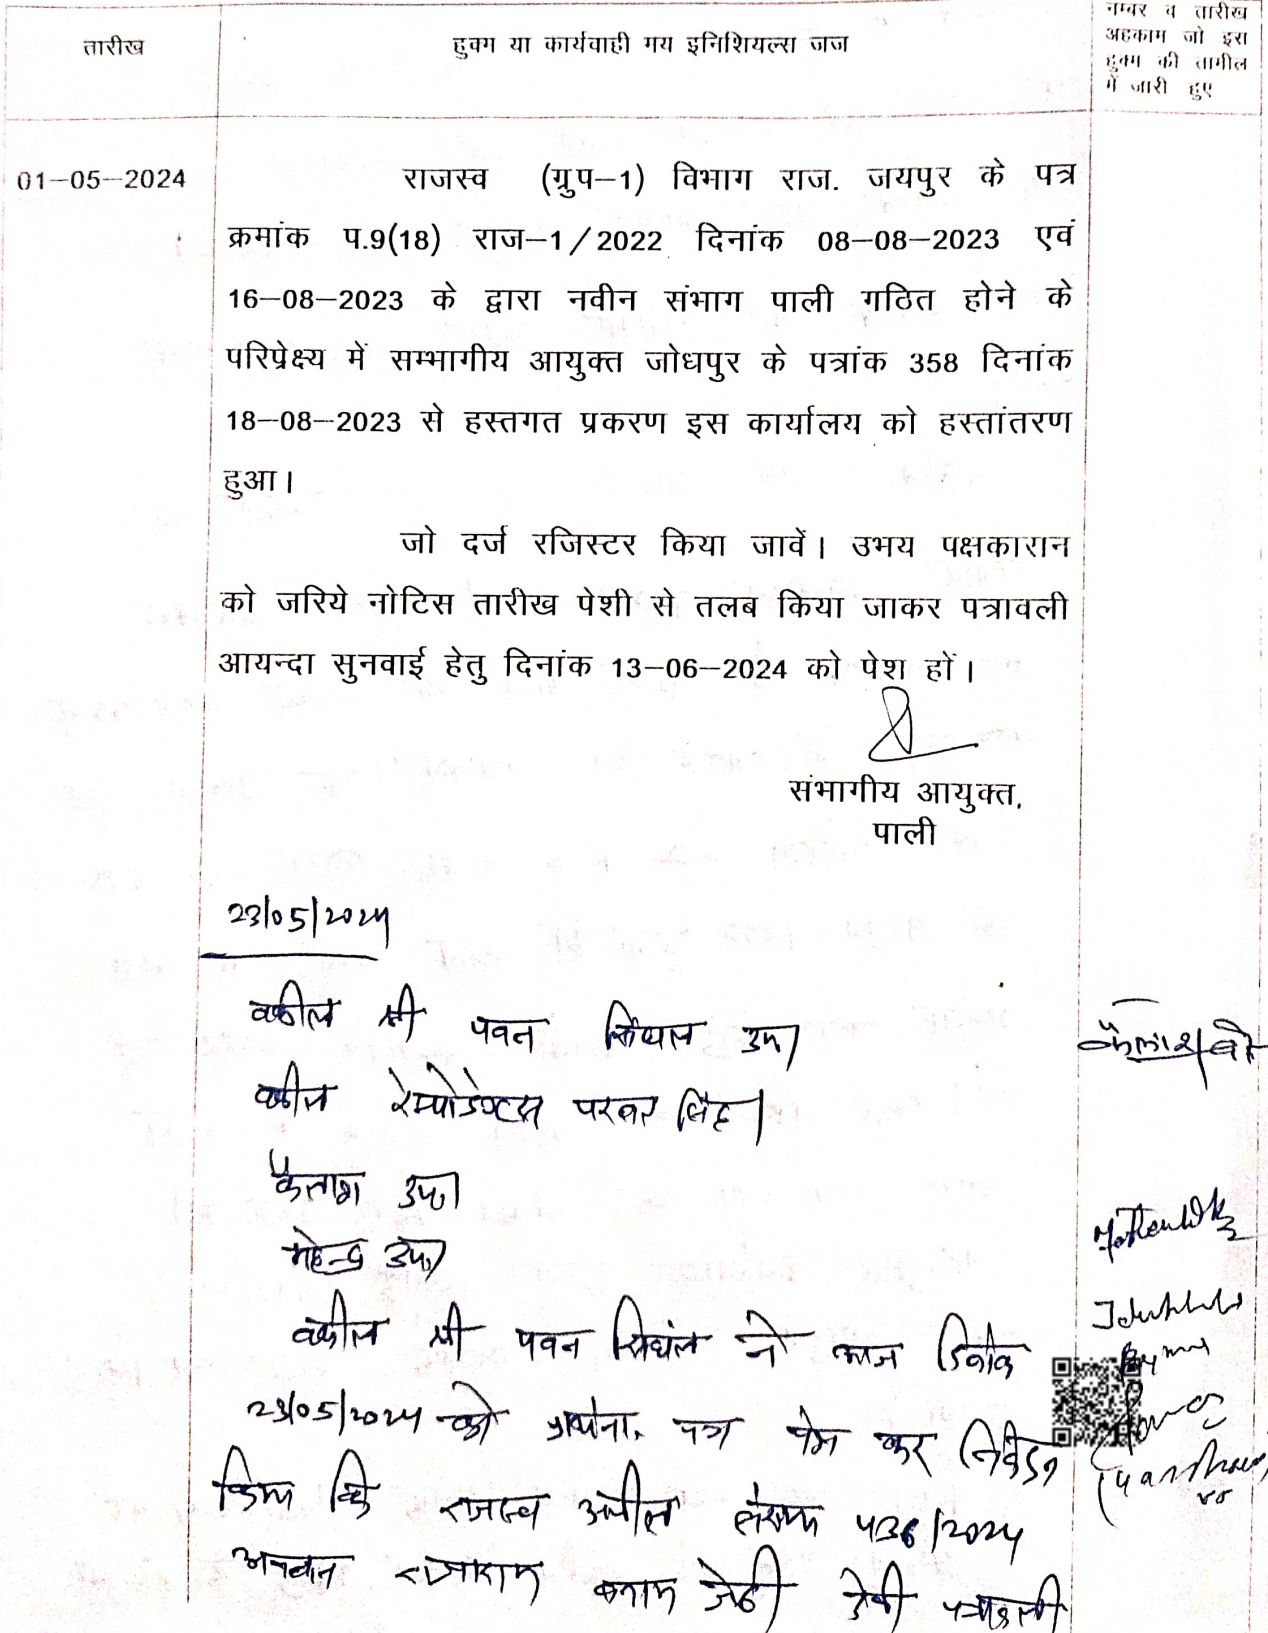 तारीख
हुक्म या कार्यवाही मय इनिशियल्स जज
नम्बर व तारीख
अहकाम जो इस
हुक्म की तामील
में जारी हुए
01-05-2024
राजस्व (ग्रुप-1) विभाग राज. जयपुर के पत्र
क्रमांक प.9(18) राज-1/2022 दिनांक 08-08-2023 एवं
16-08-2023 के द्वारा नवीन संभाग पाली गठित होने के
परिप्रेक्ष्य में सम्भागीय आयुक्त जोधपुर के पत्रांक 358 दिनांक
18-08-2023 से हस्तगत प्रकरण इस कार्यालय को हस्तांतरण
हुआ।
जो दर्ज रजिस्टर किया जावें। उभय पक्षकारान
को जरिये नोटिस तारीख पेशी से तलब किया जाकर पत्रावली
आयन्दा सुनवाई हेतु दिनांक 13-06-2024 को पेश हों।
संभागीय आयुक्त,
पाली
23/05/2024
वकील श्री पवन सिंघल उप।
वकील रेस्पोडेण्टस परबत सिंह।
कैलाश उप।
महेन्द्र उप।
वकील श्री पवन सिंघल ने आज दिनांक
23/05/2024 को प्रार्थना पत्र पेश कर निवेदन
किया कि राजस्व अपील संख्या 436/2024
राजाराम बनाम जेठी देवी पत्रावली
कैलाश